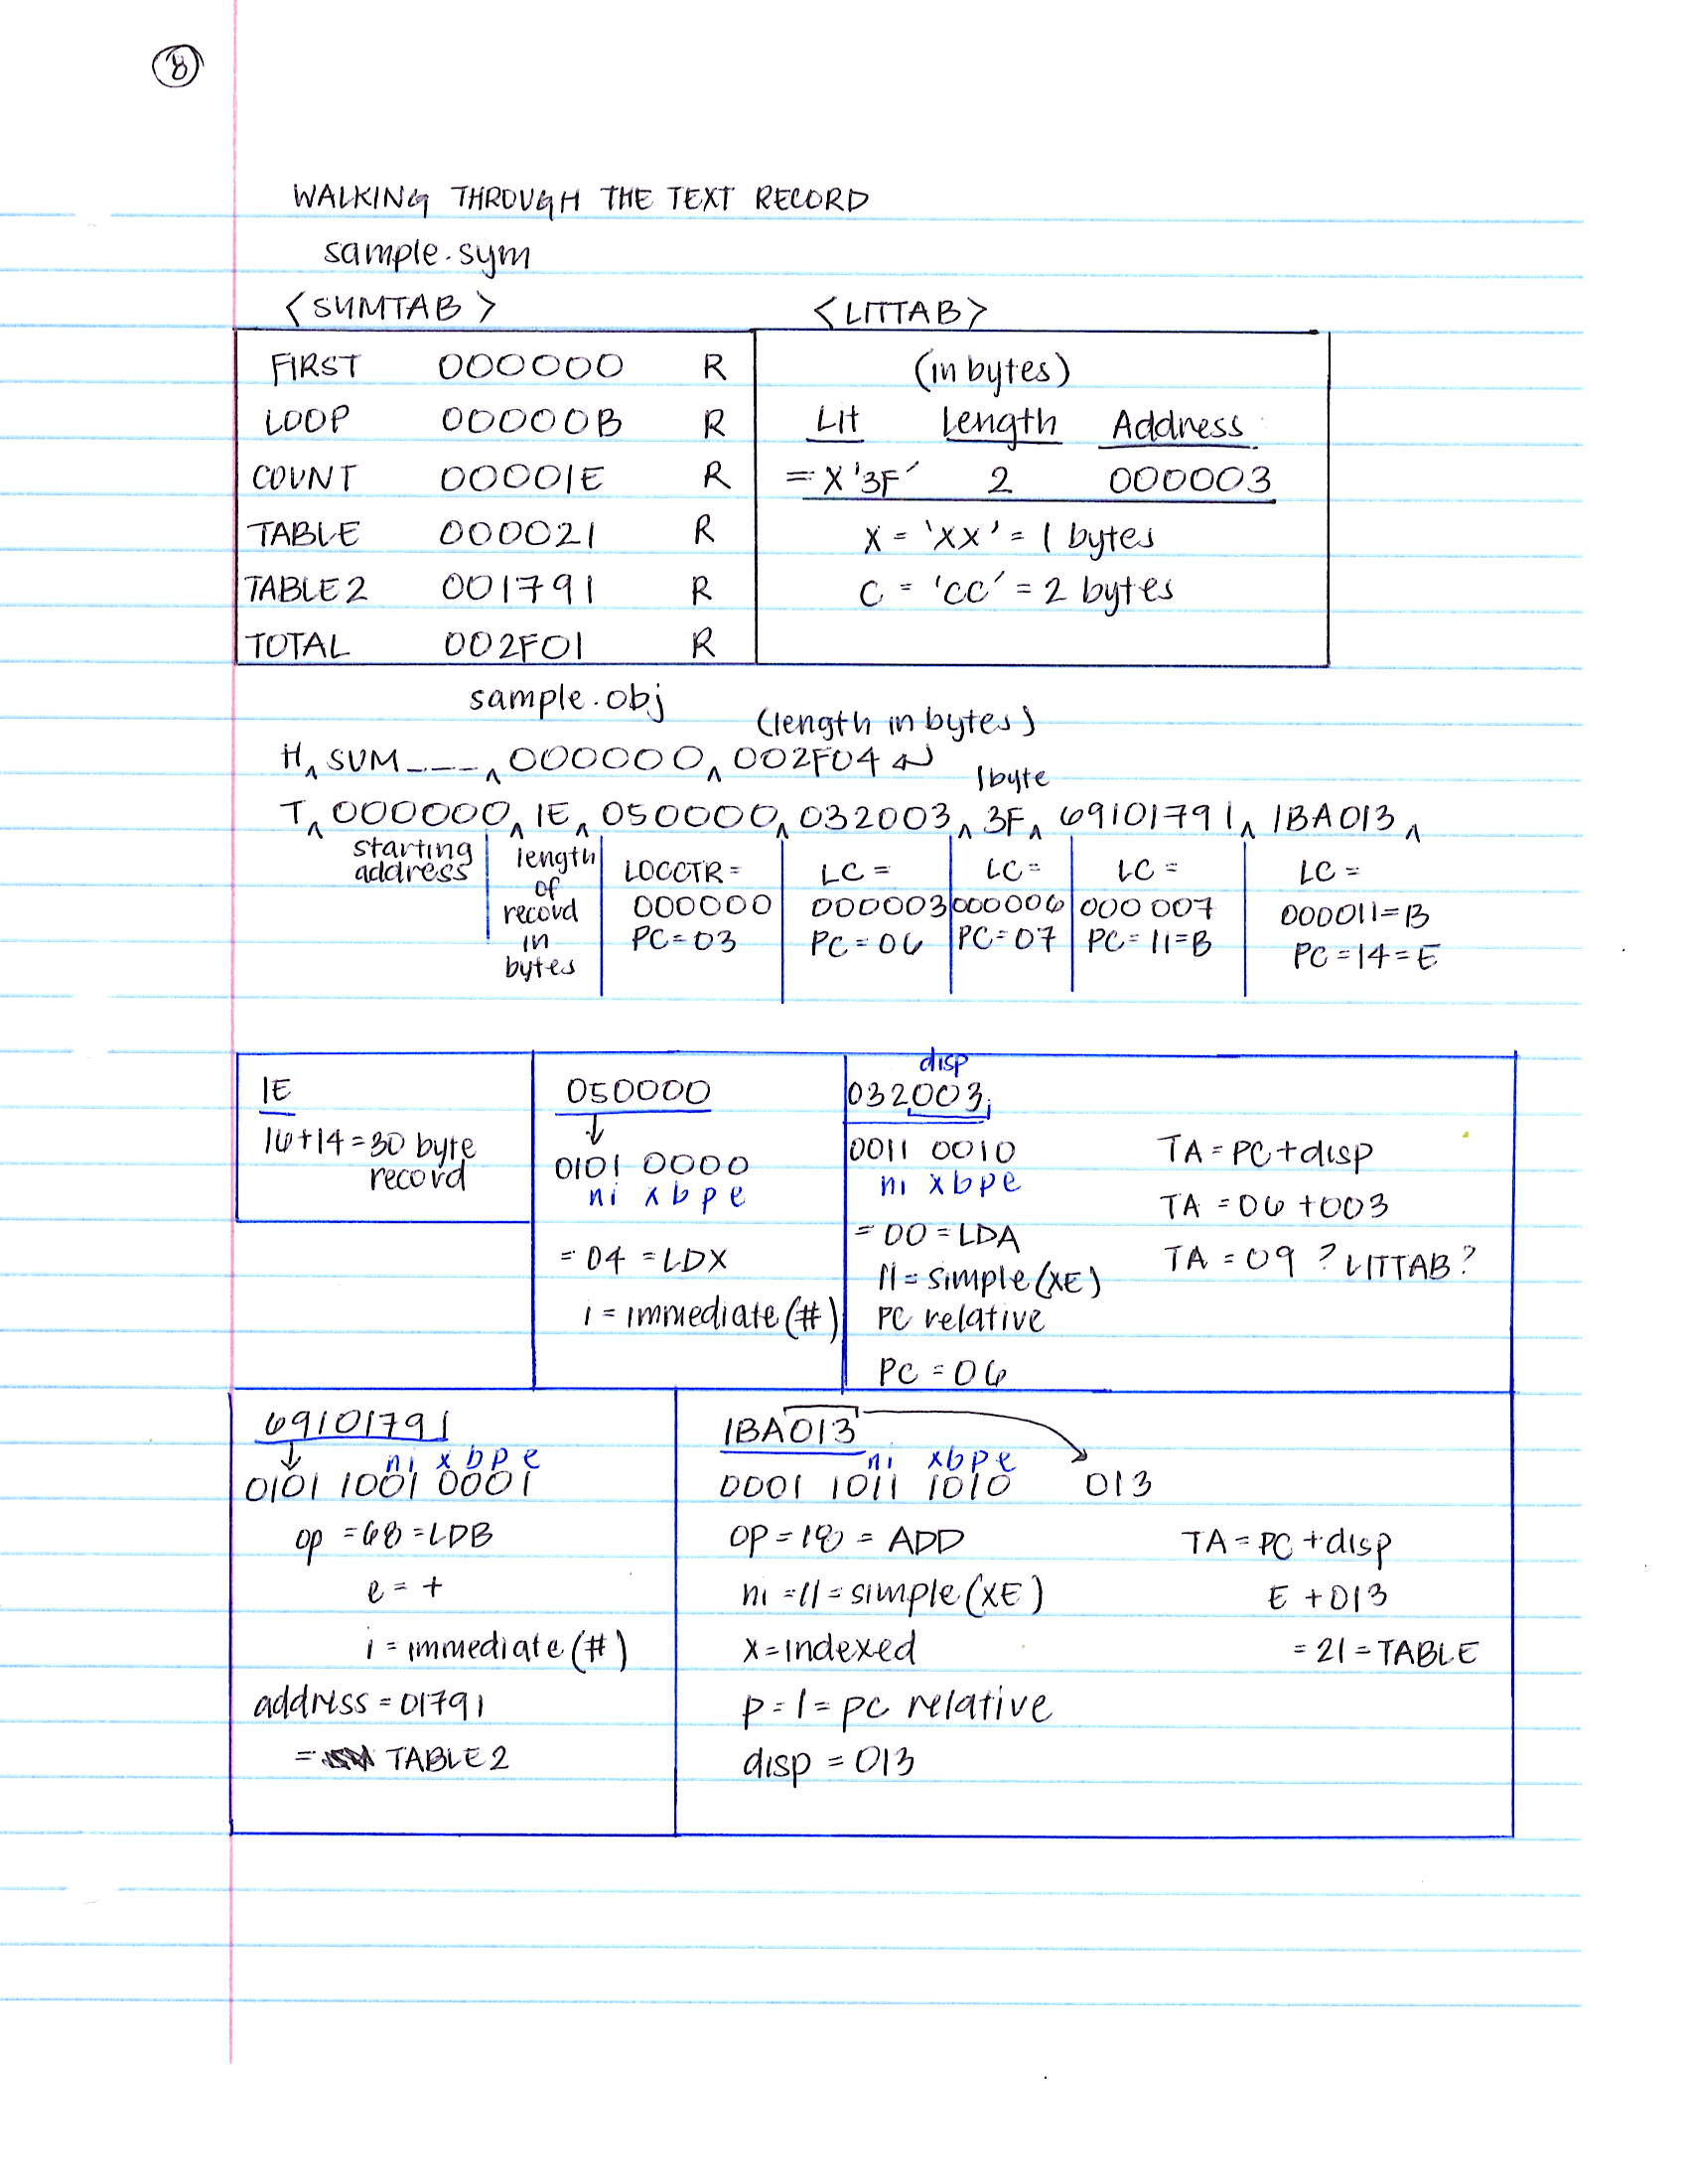 8
WALKING THROUGH THE TEXT RECORD
sample.sym
<SYMTAB> <LITTAB>
FIRST 000000 R (in bytes)
LOOP 00000B R Lit Length Address
COUNT 00001E R =X'3F' 2 000003
TABLE 000021 R X = 'XX' = 1 bytes
TABLE2 001791 R C = 'CC' = 2 bytes
TOTAL 002F01 R
sample.obj
(length in bytes)
H^SUM___^000000^002F04 ↵
1byte
T^000000^1E^050000^032003^3F^69101791^1BA013^
starting address
length of record in bytes
LOCCTR = 000000 PC=03
LC = 000003 PC=06
LC = 000006 PC=07
LC = 000007 PC=11=B
LC = 000011=B PC=14=E
1E
16+14=30 byte
record
050000
↓
0101 0000
ni xbpe
= 04 = LDX
i = immediate (#)
disp
032003
0011 0010
ni xbpe
= 00 = LDA
11 = simple (XE)
PC relative
PC = 06
TA = PC + disp
TA = 06 + 003
TA = 09 ? LITTAB?
69101791
↓ ni xbpe
0101 1001 0001
op = 68 = LDB
e = +
i = immediate (#)
address = 01791
= TABLE2
1BA013
ni xbpe
0001 1011 1010 013
OP = 18 = ADD
ni = 11 = simple (XE)
x = indexed
p = 1 = pc relative
disp = 013
TA = PC + disp
E + 013
= 21 = TABLE